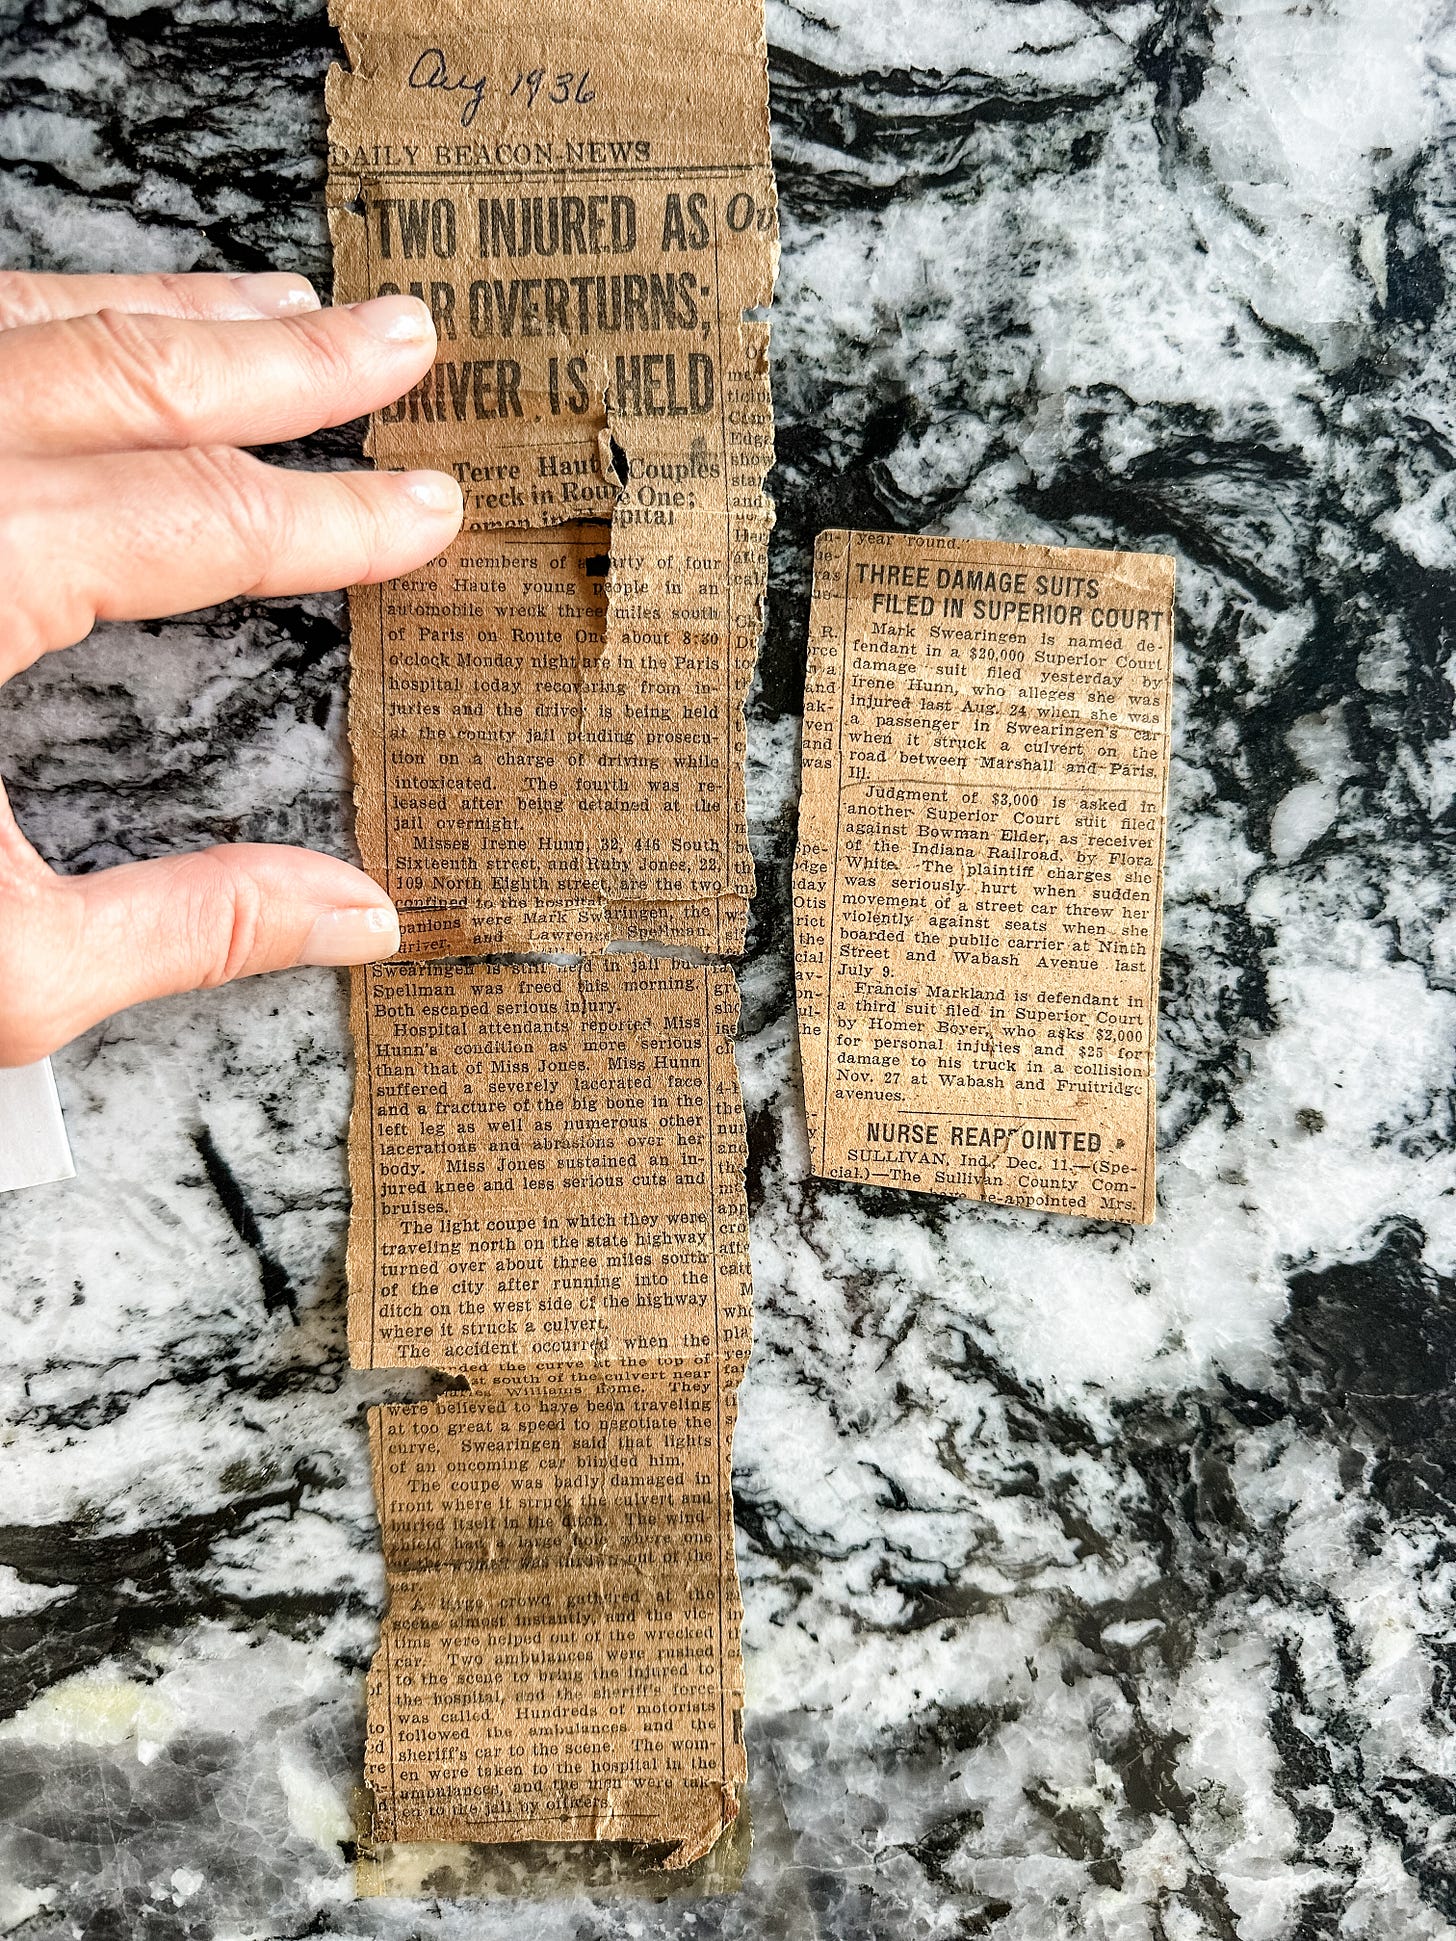 Aug 1936
DAILY BEACON-NEWS
TWO INJURED AS
CAR OVERTURNS;
DRIVER IS HELD
Terre Haute Couples
Wreck in Route One;
Women in Hospital
Two members of a party of four
Terre Haute young people in an
automobile wreck three miles south
of Paris on Route One about 8:30
o'clock Monday night are in the Paris
hospital today recovering from in-
juries and the driver is being held
at the county jail pending prosecu-
tion on a charge of driving while
intoxicated. The fourth was re-
leased after being detained at the
jail overnight.
Misses Irene Hunn, 32, 446 South
Sixteenth street, and Ruby Jones, 22,
109 North Eighth street, are the two
confined to the hospital.
panions were Mark Swearingen, the
driver, and Lawrence Spellman.
Swearingen is still held in jail but
Spellman was freed this morning.
Both escaped serious injury.
Hospital attendants reported Miss
Hunn's condition as more serious
than that of Miss Jones. Miss Hunn
suffered a severely lacerated face
and a fracture of the big bone in the
left leg as well as numerous other
lacerations and abrasions over her
body. Miss Jones sustained an in-
jured knee and less serious cuts and
bruises.
The light coupe in which they were
traveling north on the state highway
turned over about three miles south
of the city after running into the
ditch on the west side of the highway
where it struck a culvert.
The accident occurred when the
nded the curve at the top of
st south of the culvert near
Williams home. They
were believed to have been traveling
at too great a speed to negotiate the
curve. Swearingen said that lights
of an oncoming car blinded him.
The coupe was badly damaged in
front where it struck the culvert and
buried itself in the ditch. The wind-
shield had a large hole where one
of the women was thrown out of the
car.
A large crowd gathered at the
scene almost instantly, and the vic-
tims were helped out of the wrecked
car. Two ambulances were rushed
to the scene to bring the injured to
the hospital, and the sheriff's force
was called. Hundreds of motorists
followed the ambulances and the
sheriff's car to the scene. The wom-
en were taken to the hospital in the
ambulances, and the men were tak-
en to the jail by officers.
year round.
THREE DAMAGE SUITS
FILED IN SUPERIOR COURT
Mark Swearingen is named de-
fendant in a $20,000 Superior Court
damage suit filed yesterday by
Irene Hunn, who alleges she was
injured last Aug. 24 when she was
a passenger in Swearingen's car
when it struck a culvert on the
road between Marshall and Paris,
Ill.
Judgment of $3,000 is asked in
another Superior Court suit filed
against Bowman Elder, as receiver
of the Indiana Railroad, by Flora
White. The plaintiff charges she
was seriously hurt when sudden
movement of a street car threw her
violently against seats when she
boarded the public carrier at Ninth
Street and Wabash Avenue last
July 9.
Francis Markland is defendant in
a third suit filed in Superior Court
by Homer Boyer, who asks $2,000
for personal injuries and $25 for
damage to his truck in a collision
Nov. 27 at Wabash and Fruitridge
avenues.
NURSE REAPPOINTED
SULLIVAN, Ind., Dec. 11.—(Spe-
cial.)—The Sullivan County Com-
re-appointed Mrs.